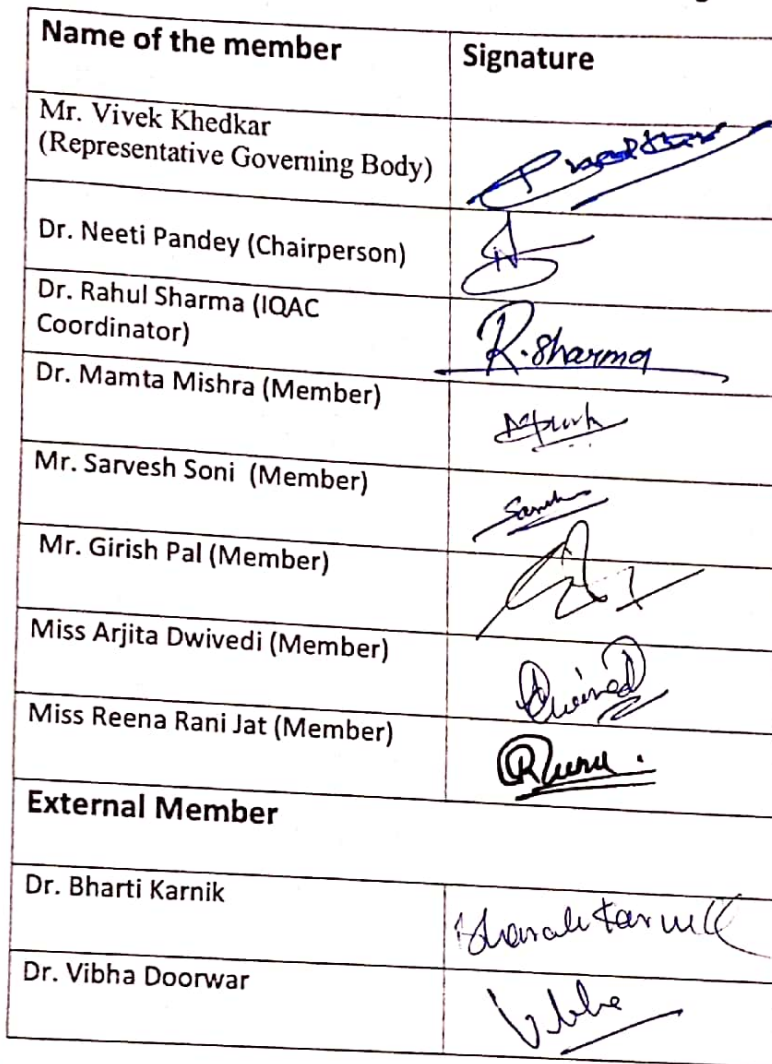 Name of the member Signature
Mr. Vivek Khedkar
(Representative Governing Body)
Dr. Neeti Pandey (Chairperson)
Dr. Rahul Sharma (IQAC
Coordinator)
R. Sharma
Dr. Mamta Mishra (Member)
Mr. Sarvesh Soni (Member)
Mr. Girish Pal (Member)
Miss Arjita Dwivedi (Member)
Miss Reena Rani Jat (Member)
External Member
Dr. Bharti Karnik
Dr. Vibha Doorwar
Vibha